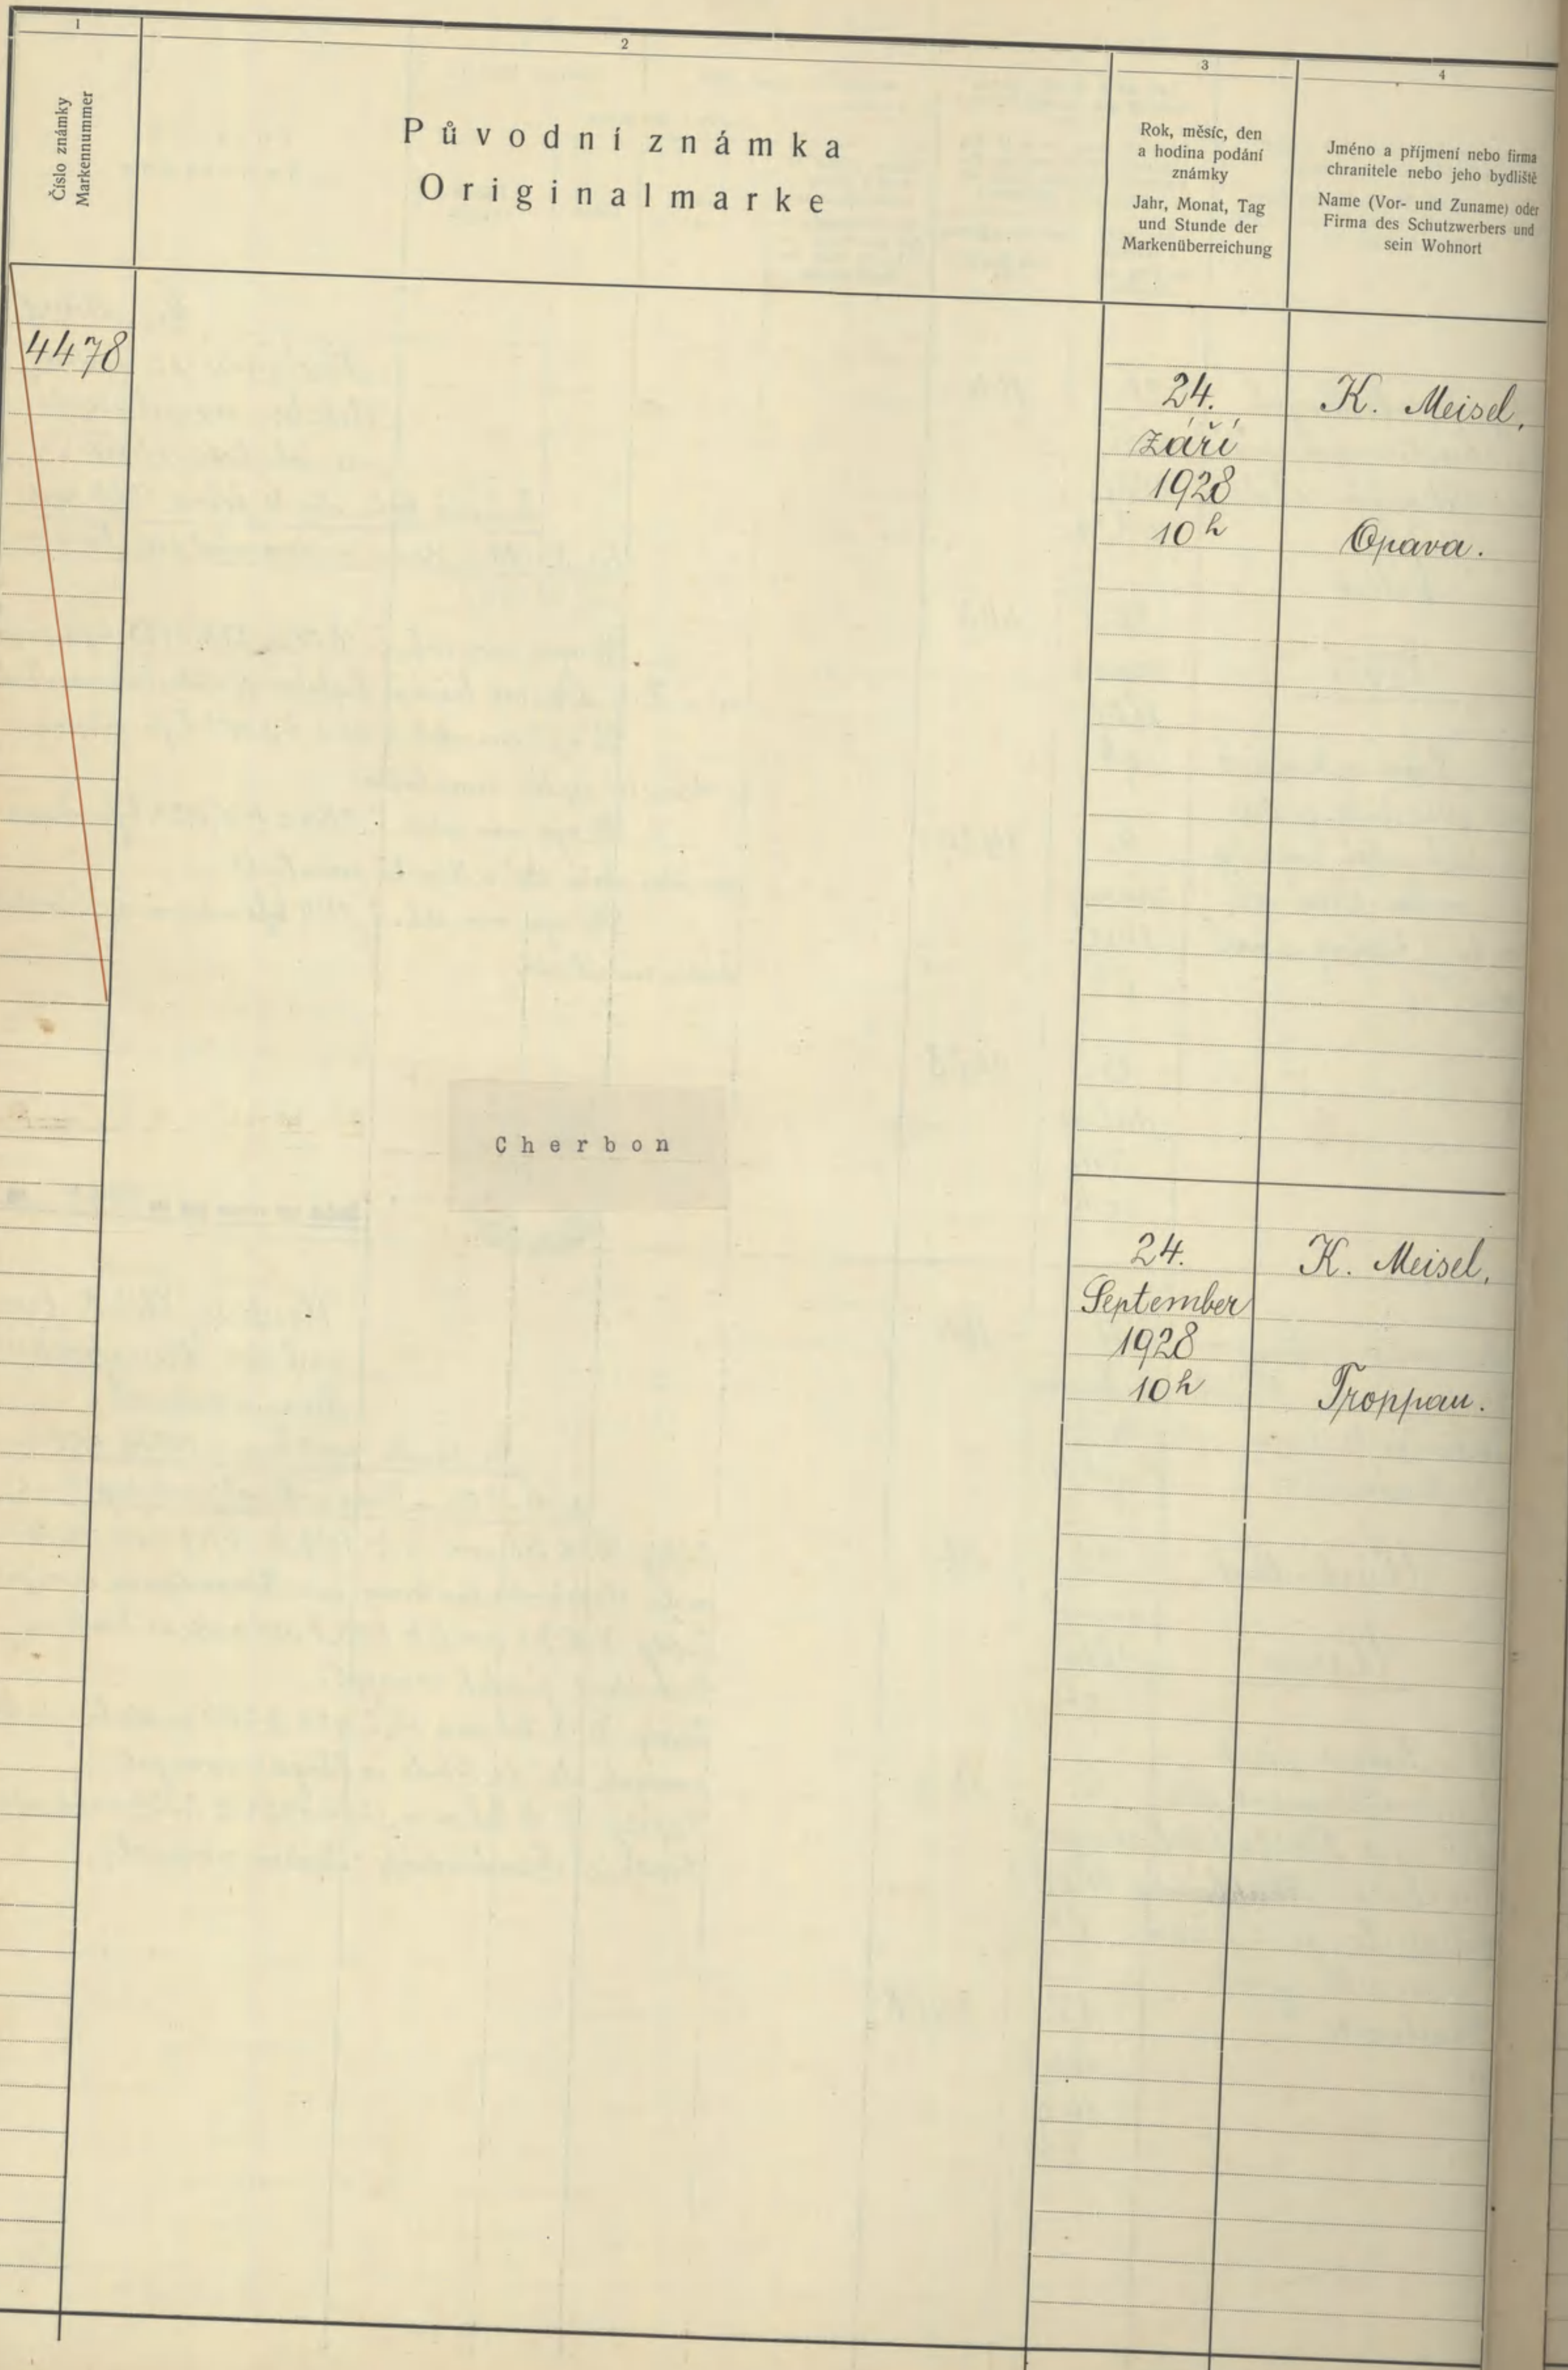 1
2
3
4
Číslo známky
Markennummer
Původní známka
Originalmarke
Rok, měsíc, den
a hodina podání
známky
Jahr, Monat, Tag
und Stunde der
Markenüberreichung
Jméno a příjmení nebo firma
chranitele nebo jeho bydliště
Name (Vor- und Zuname) oder
Firma des Schutzwerbers und
sein Wohnort
4478
24.
září
1928
10 h
K. Meisel,
Opava.
Cherbon
24.
September
1928
10 h
K. Meisel,
Troppau.